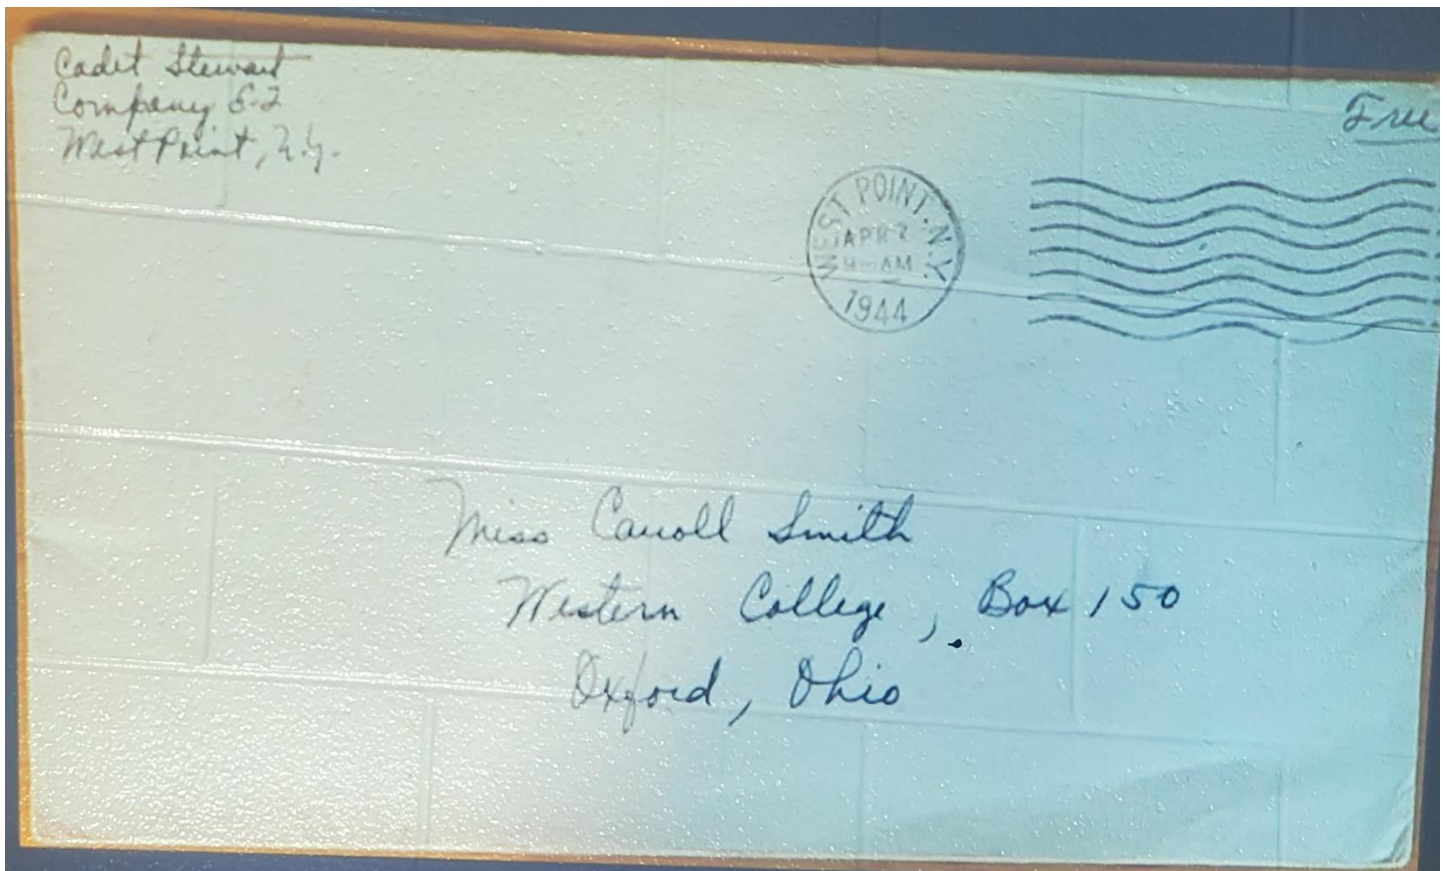 Cadet Stewart
Company E-2
West Point, N.Y.
Free
WEST POINT, N.Y.
APR 7
AM
1944
Miss Carroll Smith
Western College, Box 150
Oxford, Ohio